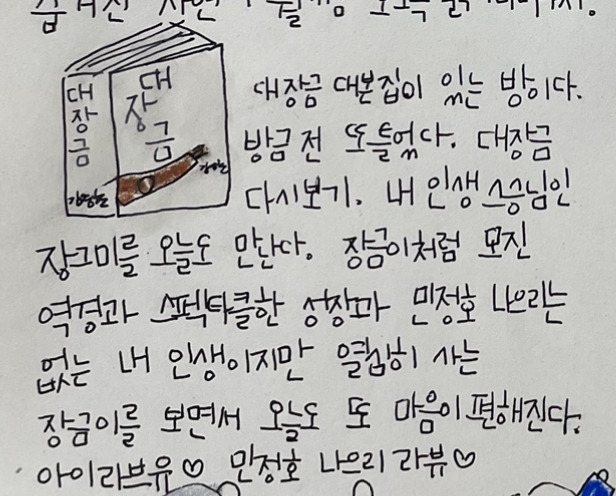 숨겨진 사연
대장금
대장금
대장금 대본집이 있는 방이다.
방금 전 또 틀었다. 대장금
다시보기. 내 인생 스승님인
장그미를 오늘도 만난다. 장금이처럼 모진
역경과 스펙타클한 성장과 민정호 나으리는
없는 내 인생이지만 열심히 사는
장금이를 보면서 오늘도 또 마음이 편해진다.
아이라브유♡ 민정호 나으리 라뷰♡